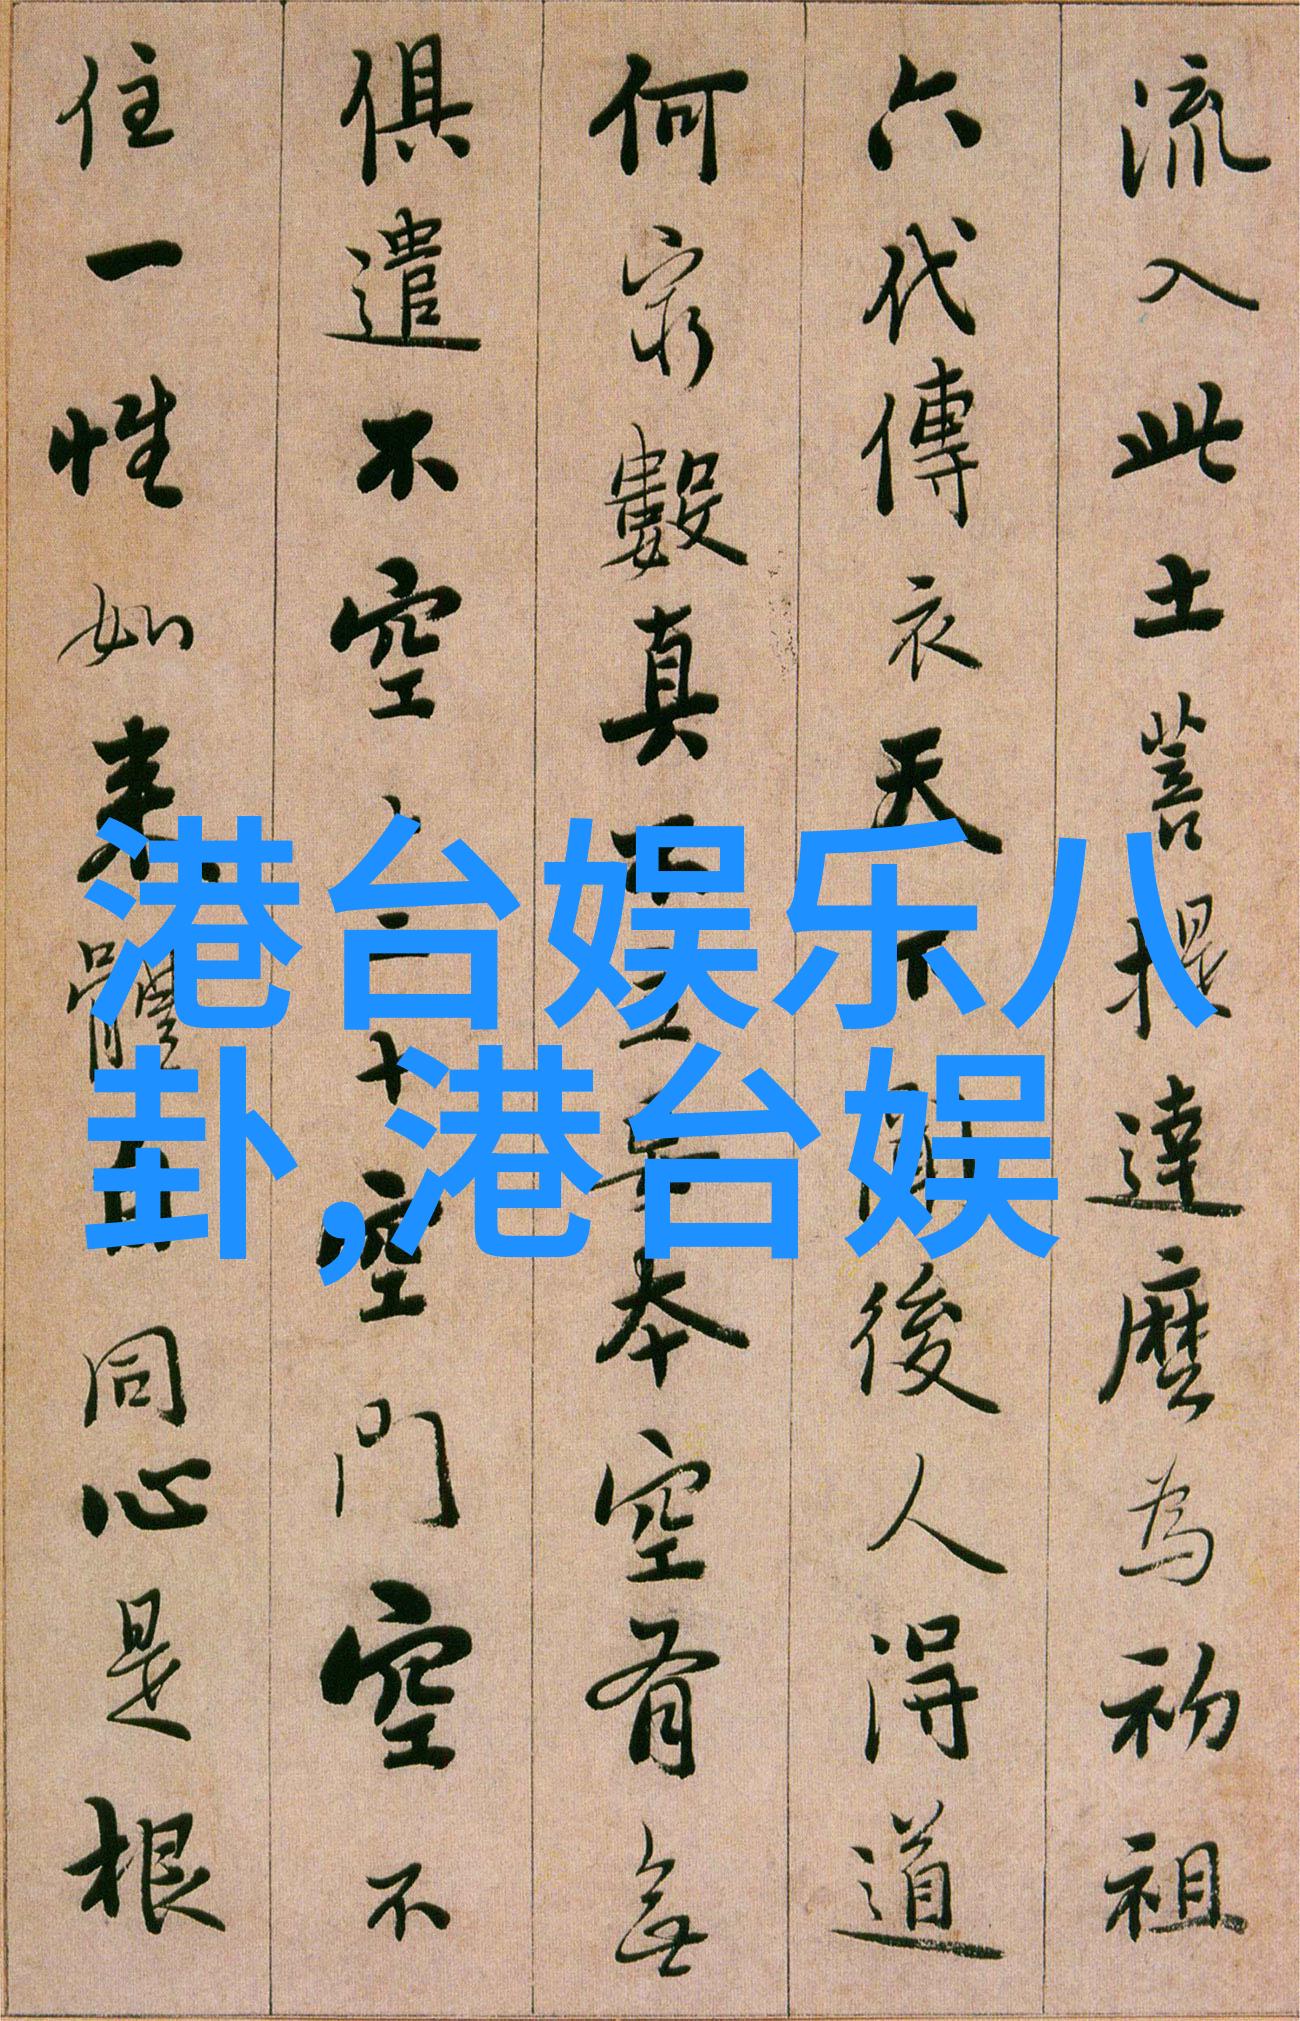 流入此土菩提達麼為初祖
六代傳衣天下聞後人得道
何穷數真不立妄本空有無
俱遣不空々二十空門空不
住一性如来體自同心是根
港台娱乐八
卦,港台娱